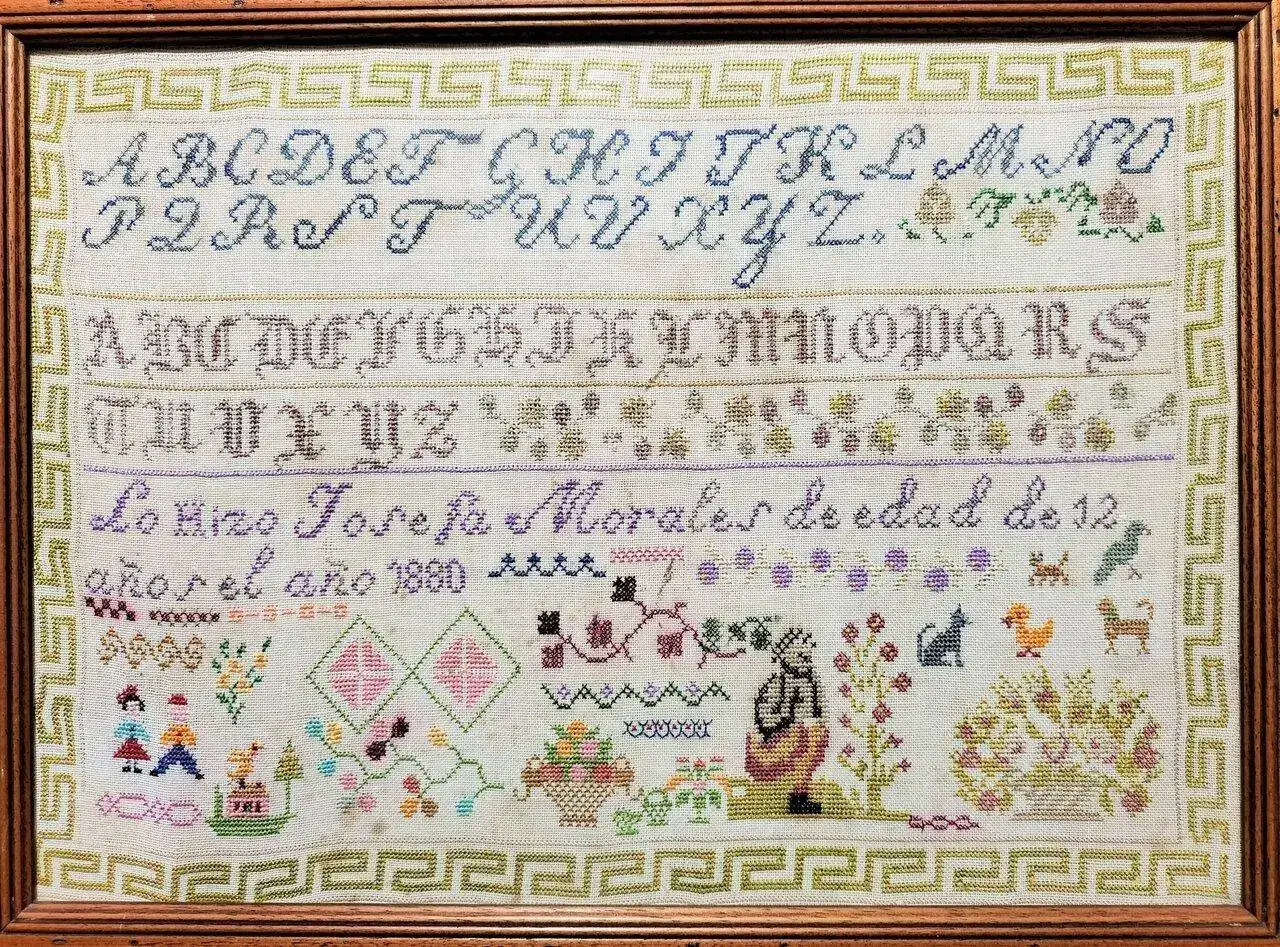 A B C D E F G H I J K L M N O
P Q R S T U V X Y Z.
A B C D E F G H I K L M N O P Q R S
T U V X Y Z
Lo Hizo Josefa Morales de edad de 12
años el año 1880